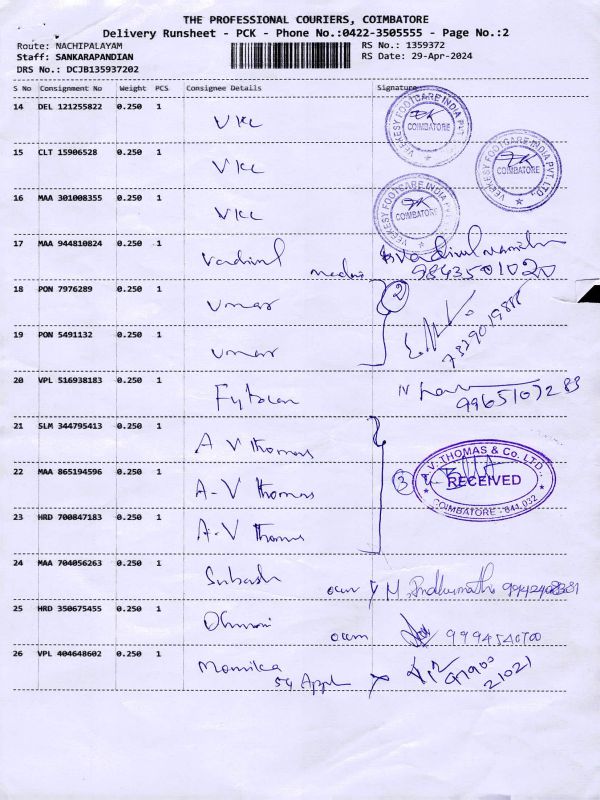 THE PROFESSIONAL COURIERS, COIMBATORE
Delivery Runsheet - PCK - Phone No.:0422-3505555 - Page No.:2
Route: NACHIPALAYAM
RS No.: 1359372
Staff: SANKARAPANDIAN
RS Date: 29-Apr-2024
DRS No.: DCJB135937202
S No Consignment No Weight PCS Consignee Details Signature
14 DEL 121255822 0.250 1 VKC
VEEKESY FOOTCARE INDIA PVT. COIMBATORE
15 CLT 15906528 0.250 1 VKC
VEEKESY FOOTCARE INDIA PVT. LTD. COIMBATORE
16 MAA 301008355 0.250 1 VKC
VEEKESY FOOTCARE INDIA PVT. COIMBATORE
17 MAA 944810824 0.250 1 9843501020
18 PON 7976289 0.250 1 Umar 2
19 PON 5491132 0.250 1 Umar
20 VPL 516938183 0.250 1
21 SLM 344795413 0.250 1 A V Thomas
A.V. THOMAS & Co. LTD.
22 MAA 865194596 0.250 1 A-V Thomas 3 RECEIVED
COIMBATORE - 641 032
23 HRD 700847183 0.250 1 A-V Thomas
24 MAA 704056263 0.250 1 Subash
25 HRD 350675455 0.250 1
26 VPL 404648602 0.250 1 Monika